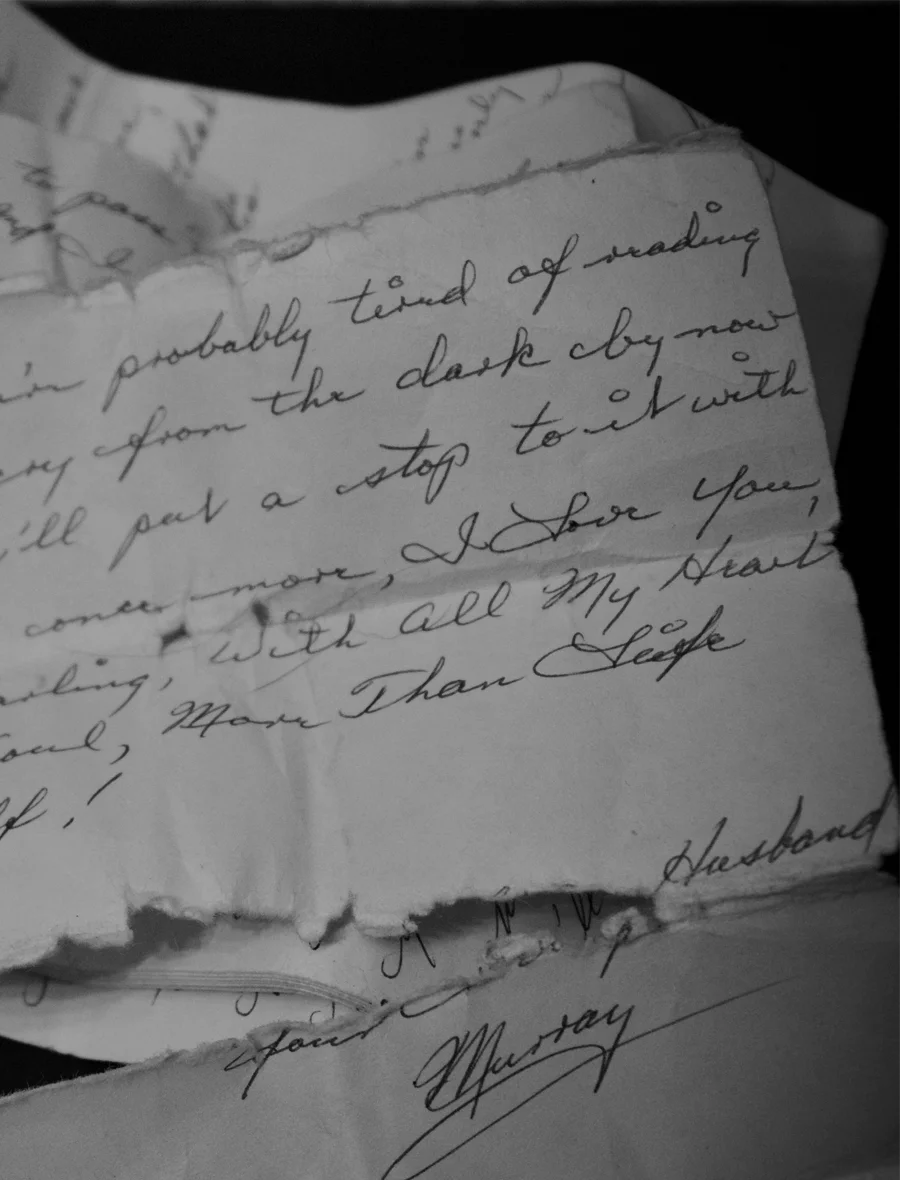 probably tired of reading
from the dark by now
'll put a stop to it with
once more, I Love You,
arling, With All My Heart
oul, More Than Life
lf!
Husband
Your
Murray